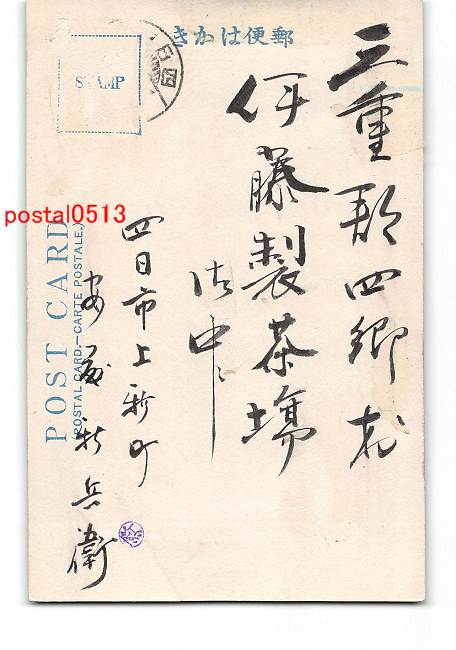 きかは便郵
STAMP
三重郡四郷村
伊藤製茶場
御中
四日市上新町
安藤新兵衛
POST CARD
(POSTAL CARD.—CARTE POSTALE.)
postal0513